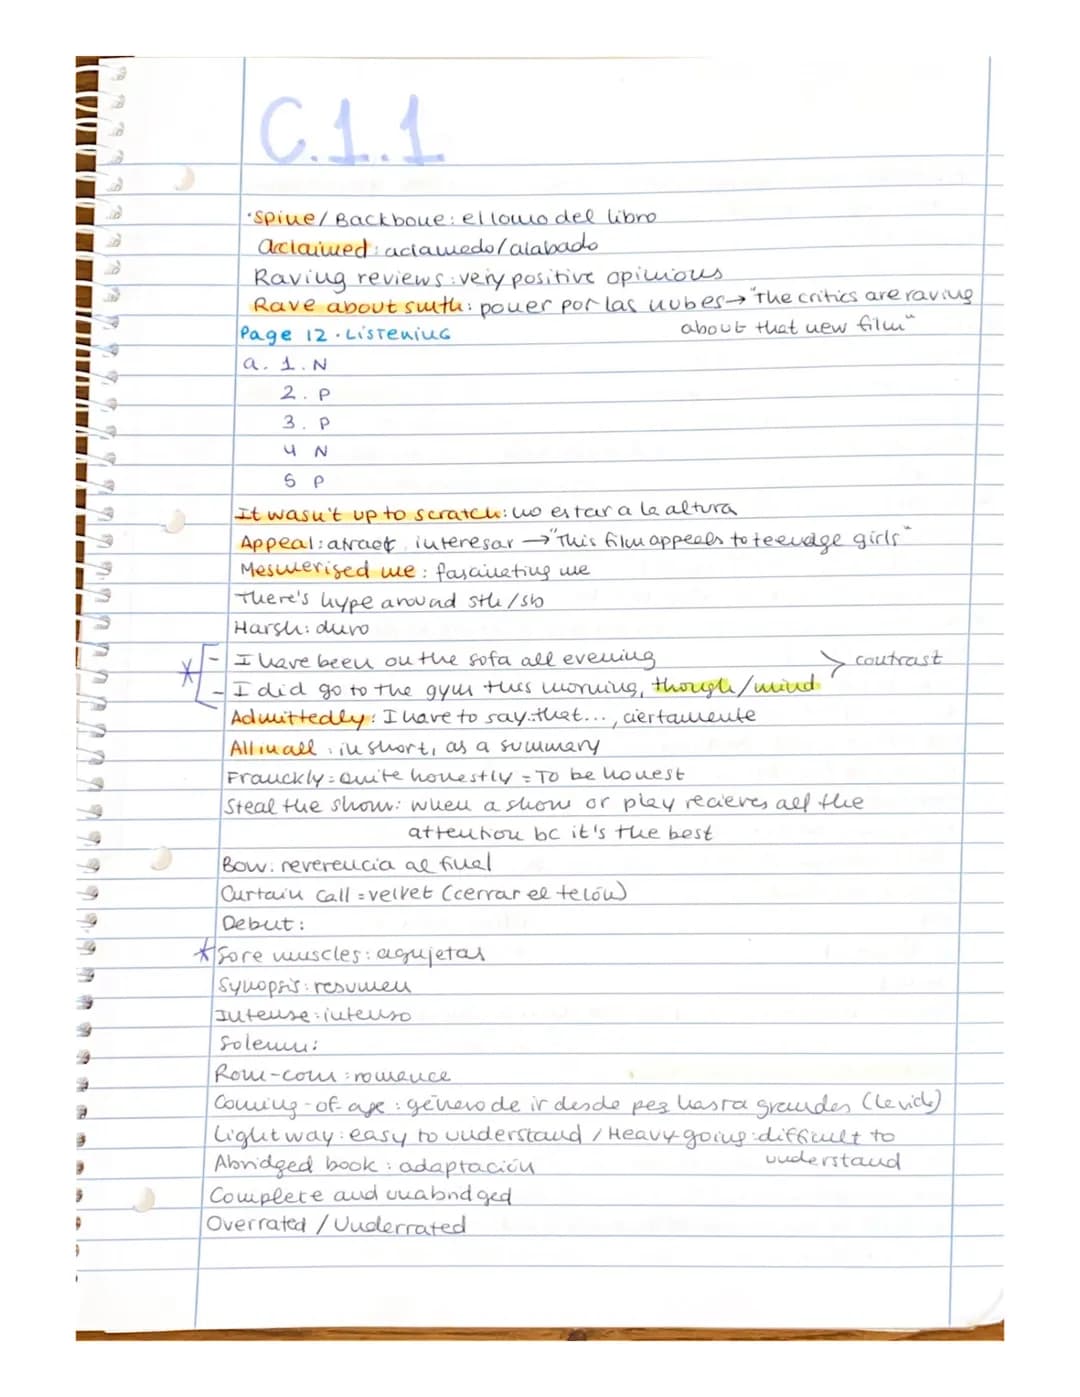 C.1.1
·Spine/Backbone: el lomo del libro
Acclaimed: aclamedo/alabado
Raving reviews: very positive opinions
Rave about smth: poner por las nubes→"The critics are raving
about that new film"
Page 12 · Listening
a. 1. N
2. P
3. P
4 N
5 P
It wasn't up to scratch: no estar a la altura
Appeal: atraer, interesar →"This film appeals to teenage girls"
Mesmerised me: fascinating me
There's hype around sth/sb
Harsh: duro
* - I have been on the sofa all evening > contrast
- I did go to the gym this morning, though/mind
Admittedly: I have to say that..., ciertamente
All in all: in short, as a summary
Franckly = Quite honestly = To be honest
Steal the show: when a show or play recieves all the
attention bc it's the best
Bow: reverencia al final
Curtain call = velvet (cerrar el telón)
Debut:
* Sore muscles: agujetas
Synopsis: resumen
Intense: intenso
Solemn:
Rom-com: romance
Coming-of-age: género de ir desde peq hasta grandes (la vida)
Light way: easy to understand / Heavy going: difficult to
understand
Abridged book: adaptación
Complete and unabridged
Overrated / Underrated